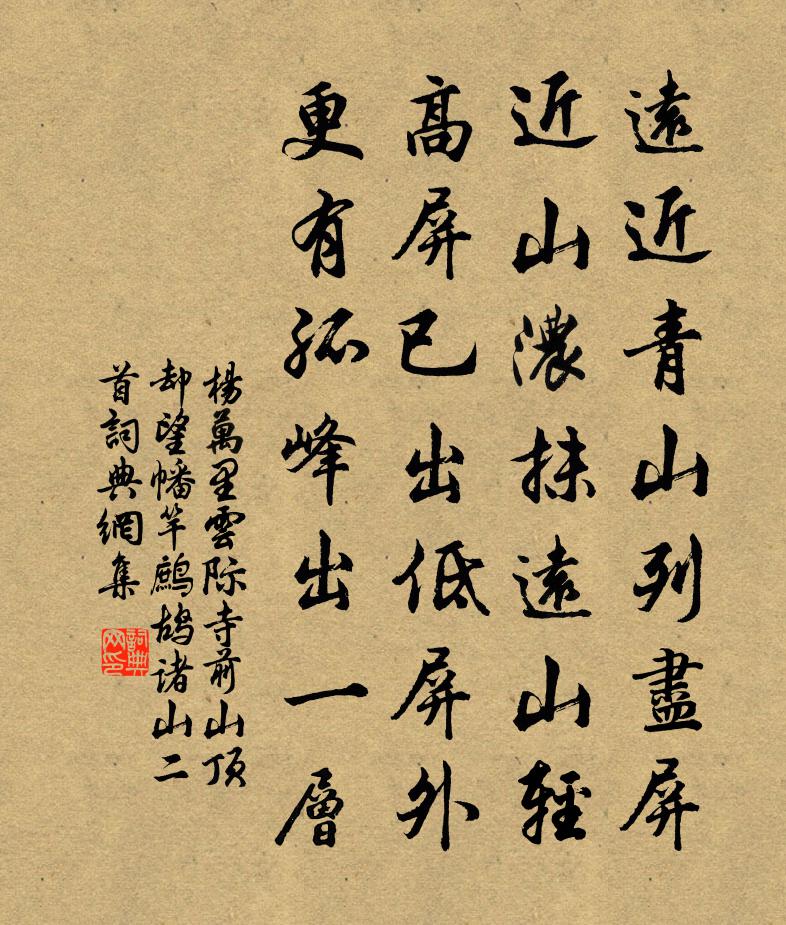 遠近青山列畫屏
近山濃抹遠山輕
高屏已出低屏外
更有孤峰出一層
楊萬里雲际寺前山頂
却望幡竿鷓鴣諸山二
首詞典網集
詞典
网印